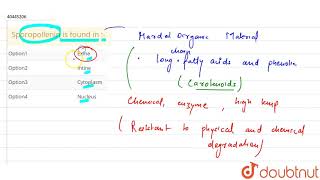 40485206
Sporopollenin is found in :-
Option1 Exine
Option2 Intine
Option3 Cytoplasm
Option4 Nucleus
Hardest Organic Material
chain
long fatty acids and phenolic
(Carotenoids)
Chemical, enzyme, high temp
(Resistant to physical and chemical
degradation)
doubtnut